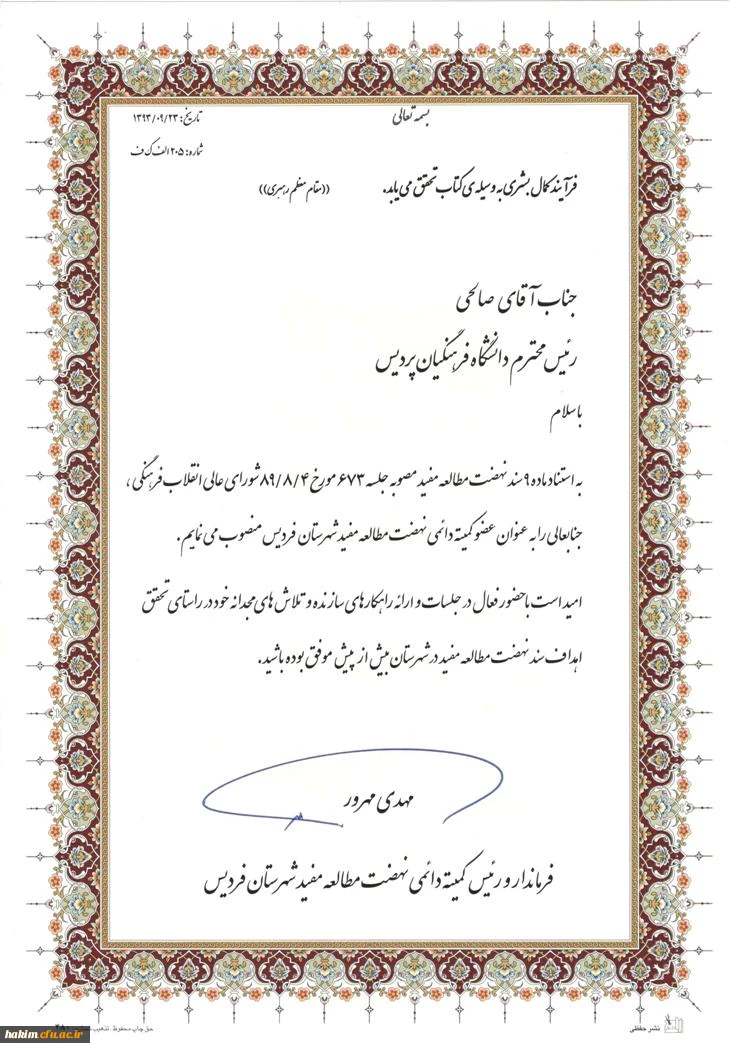 بسمه تعالی
تاریخ: ۱۳۹۳/۰۹/۲۳
شماره: ۲۰۵ الف ک ف
فرآیند کمال بشری به وسیله ی کتاب تحقق می یابد. ((مقام معظم رهبری))
جناب آقای صالحی
رئیس محترم دانشگاه فرهنگیان پردیس
باسلام
به استناد ماده ۹ سند نهضت مطالعه مفید مصوبه جلسه ۶۷۳ مورخ ۸۹/۸/۴ شورای عالی انقلاب فرهنگی ،
جنابعالی را به عنوان عضو کمیته دائمی نهضت مطالعه مفید شهرستان فردیس منصوب می نمایم .
امید است با حضور فعال در جلسات و ارائه راهکارهای سازنده و تلاش های مجدانه خود در راستای تحقق
اهداف سند نهضت مطالعه مفید در شهرستان بیش از پیش موفق بوده باشید.
مهدی مهرور
فرماندار و رئیس کمیته دائمی نهضت مطالعه مفید شهرستان فردیس
نشر حفظی
حق چاپ محفوظ. تذهیب
hakim.cfu.ac.ir